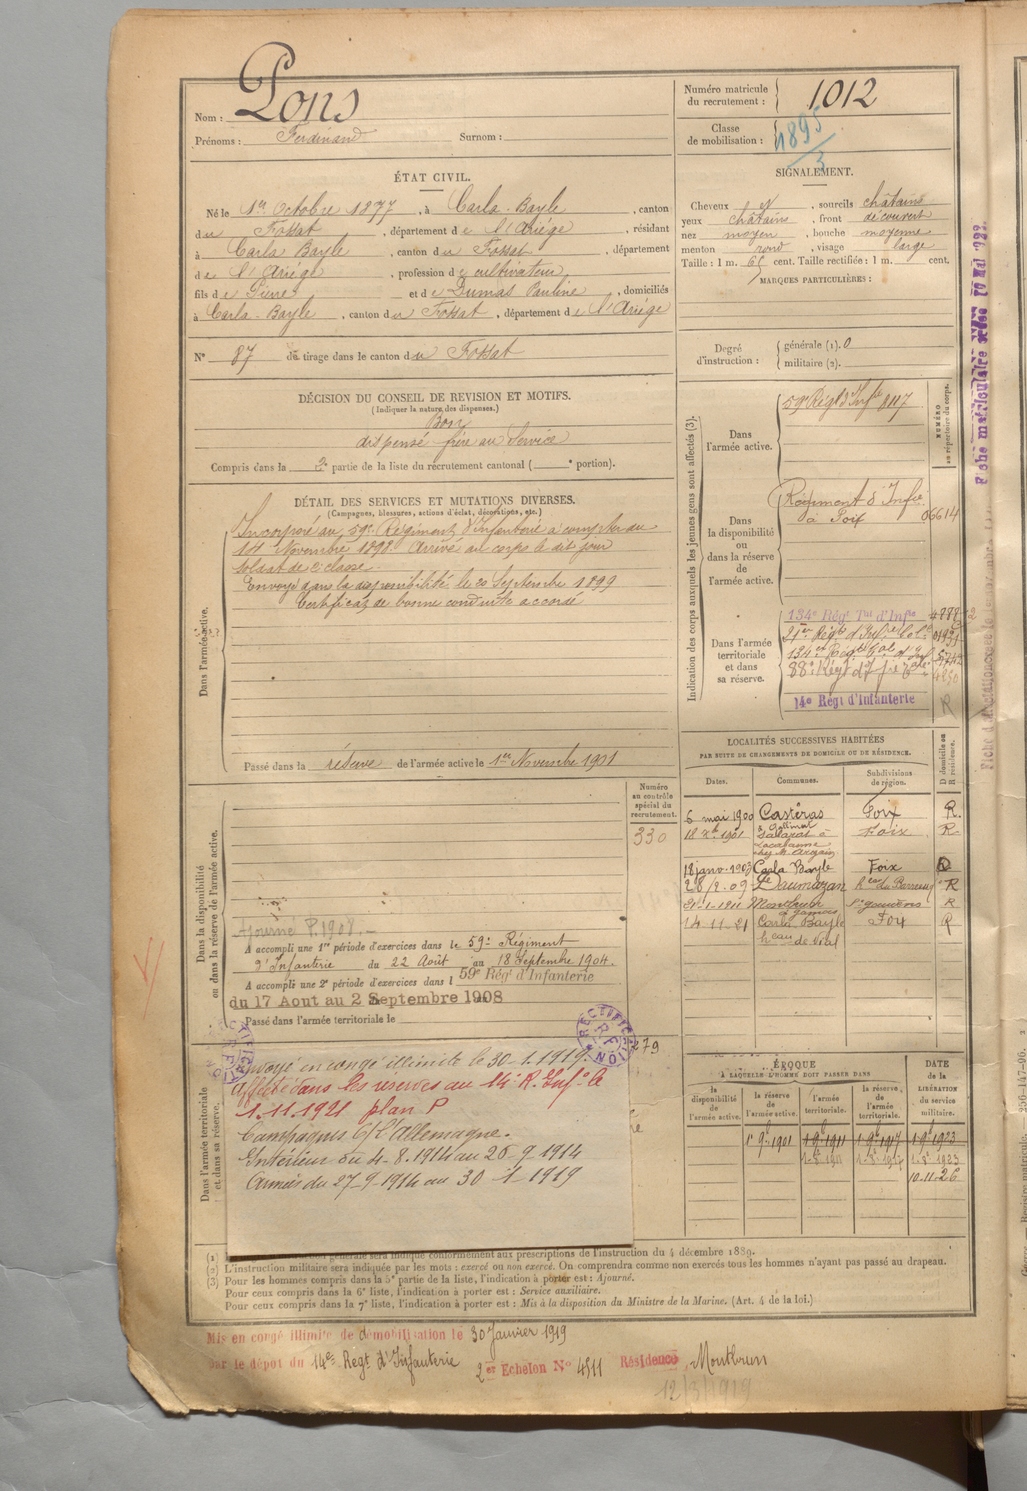 Nom : Pons
Prénoms : Ferdinand Surnom :
Numéro matricule du recrutement : 1012
Classe de mobilisation : 1895/3
ÉTAT CIVIL.
Né le 1er Octobre 1877, à Carla-Bayle, canton
du Fossat, département de l'Ariège, résidant
à Carla Bayle, canton du Fossat, département
de l'Ariège, profession de cultivateur,
fils de Pierre et de Dumas Pauline, domiciliés
à Carla-Bayle, canton du Fossat, département de l'Ariège
N° 87 de tirage dans le canton du Fossat
SIGNALEMENT.
Cheveux et, sourcils châtains
yeux châtains, front découvert
nez moyen, bouche moyenne
menton rond, visage large
Taille : 1 m. cent. Taille rectifiée : 1 m. cent.
MARQUES PARTICULIÈRES :
Degré d'instruction : générale (1). 0
militaire (2).
DÉCISION DU CONSEIL DE REVISION ET MOTIFS.
(Indiquer la nature des dispenses.)
Bon
dispensé frère au Service
Compris dans la 2e partie de la liste du recrutement cantonal ( e portion).
DÉTAIL DES SERVICES ET MUTATIONS DIVERSES.
(Campagnes, blessures, actions d'éclat, décorations, etc.)
Dans l'armée active.
Incorporé au 59e Régiment d'Infanterie à compter du
14 Novembre 1898. Arrivé au corps le dit jour
soldat de 2e classe.
Envoyé dans la disponibilité le 20 Septembre 1899
Certificat de bonne conduite accordé
Passé dans la réserve de l'armée active le 1er Novembre 1901
Indication des corps auxquels les jeunes gens sont affectés (3).
NUMÉRO au répertoire du corps.
Dans l'armée active.
59e Régt d'Infie 8117
Dans la disponibilité ou dans la réserve de l'armée active.
Régiment d'Infie
à Foix 06614
Dans l'armée territoriale et dans sa réserve.
134e Régt Tal d'Infie
134e Régt Tal d'Inf.
88e Régt d'Infie
14e Régt d'Infanterie R
LOCALITÉS SUCCESSIVES HABITÉES
PAR SUITE DE CHANGEMENTS DE DOMICILE OU DE RÉSIDENCE.
Dates. Communes. Subdivisions de région. D domicile ou R résidence.
6 mai 1900 Castéras Foix R.
Foix R.
18 janv. 1903 Carla Bayle Foix D
28/2.09 Daumazan R
Montbrun St Gaudens R
14-11-21 Carla Bayle Foix R
Numéro au contrôle spécial du recrutement.
330
Dans la disponibilité ou dans la réserve de l'armée active.
Ajourné P. 1908.-
A accompli une 1re période d'exercices dans le 59e Régiment
d'Infanterie du 22 Août au 18 Septembre 1904.
A accompli une 2e période d'exercices dans l 59e Régt d'Infanterie
du 17 Aout au 2 Septembre 1908
Passé dans l'armée territoriale le
RECTIFICATION R F
279
Dans l'armée territoriale et dans sa réserve.
Envoyé en congé illimité le 30-1.1919.
Affecté dans les réserves au 14e R. Infie le
1.11.1921 plan P
Campagnes C/ l'Allemagne.
Intérieur du 4-8-1914 au 26-9-1914
Armées du 27-9-1914 au 30-1-1919
ÉPOQUE
À LAQUELLE L'HOMME DOIT PASSER DANS
la disponibilité de l'armée active. la réserve de l'armée active. l'armée territoriale. la réserve de l'armée territoriale.
DATE de la LIBÉRATION du service militaire.
1er 9b 1901 1-9b 1911 1-9b 1917 1-9b 1923
10-11-26
conformément aux prescriptions de l'instruction du 4 décembre 1889.
(2) L'instruction militaire sera indiquée par les mots : exercé ou non exercé. On comprendra comme non exercés tous les hommes n'ayant pas passé au drapeau.
(3) Pour les hommes compris dans la 5e partie de la liste, l'indication à porter est : Ajourné.
Pour ceux compris dans la 6e liste, l'indication à porter est : Service auxiliaire.
Pour ceux compris dans la 7e liste, l'indication à porter est : Mis à la disposition du Ministre de la Marine. (Art. 4 de la loi.)
Mis en congé illimité de démobilisation le 30 Janvier 1919
par le dépôt du 14e Régt d'Infanterie 2er Echelon N° 4511 Résidence Montbrun
12/3/1919